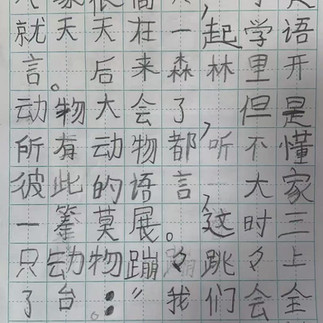 就天天在一起学语
言。后来森林里开
动物大会了，但是
所有动物都听不懂
彼此的语言，大家
一筹莫展。这时三
只动物蹦々跳々上
了台：“我们会全